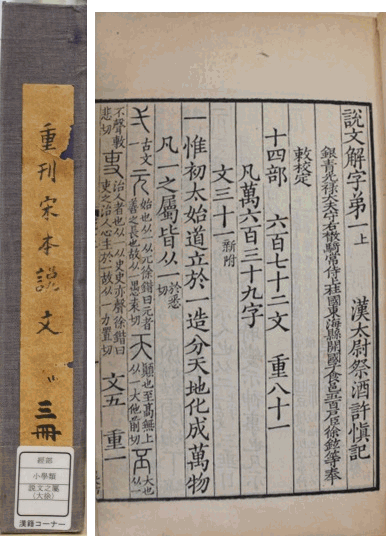 重刊宋本說文 三冊
經部
小學類
說文之屬
(大徐)
漢籍コーナー
說文解字弟一上 漢太尉祭酒許慎記
銀青光祿大夫守右散騎常侍上柱國東海縣開國子食邑五百戶臣徐鉉等奉
敕校定
十四部 六百七十二文 重八十一
凡萬六百三十九字
文三十一新附
一惟初太始道立於一造分天地化成萬物
凡一之屬皆从一於悉切
弌古文一 元始也从一从兀徐鍇曰元者善之長也故从一愚袁切 天顚也至高無上从一大他前切 丕大也从一
不聲敷悲切 吏治人者也从一从史史亦聲徐鍇曰吏之治人心主於一故从一力置切 文五 重一